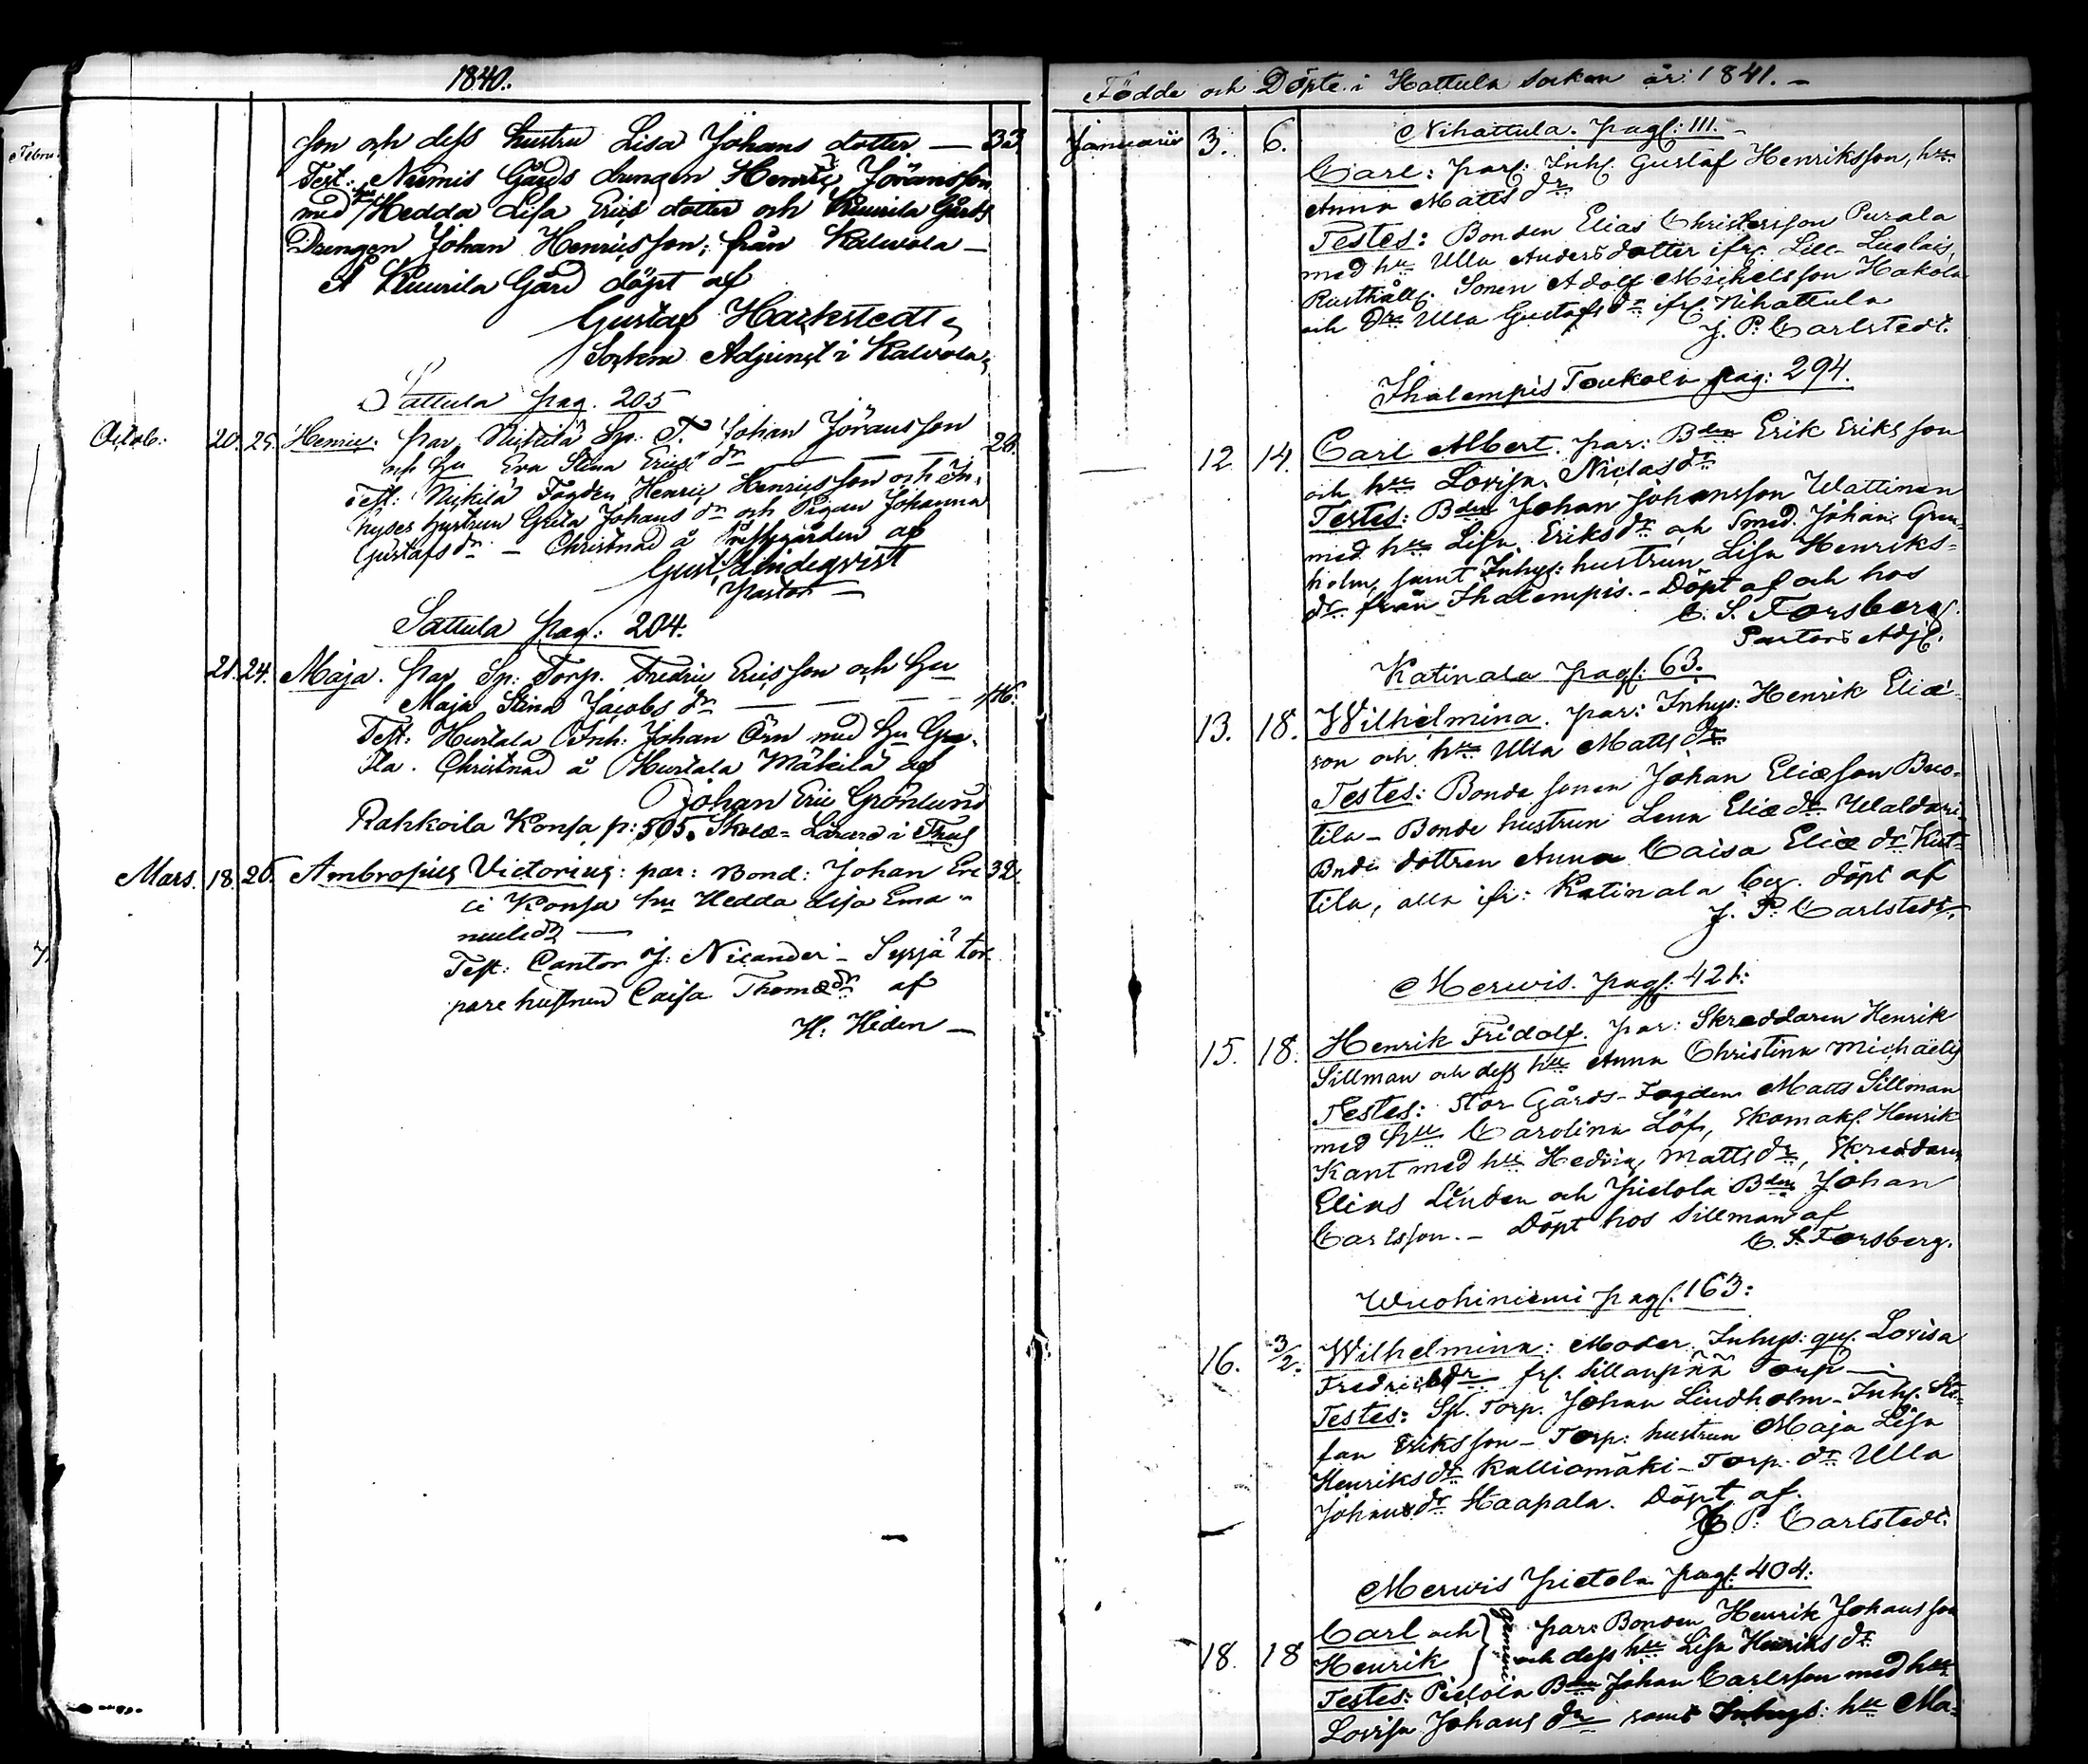 1840.
son och dess hustru Lisa Johans dotter — 33
Test: Niemis Gårds drengen Henric Jöransson
med hu Hedda Lisa Erics dotter och Kuurila Gårds
Drengen Johan Henricsson; från Kalvola —
A Kuurila Gård döpt af
Gustaf Harkstedt
Sockne Adjunct i Kalvola
Sattula pag. 205
Octob: 20. 25. Henric. par. Nickilä Sp. T. Johan Jöransson 28.
och hu Eva Stina Erics dr
Test: Nickilä Fogden Henric Henricsson och In-
hyses hustrun Greta Johans dr och Pigan Johanna
Gustafs dr. — Christnad å Prestegården af
Gust. Lindeqvist
Pastor —
Sattula pag: 204.
21. 24. Maja. par Sp: Torp. Fredric Ericsson och hu
Maja Stina Jacobs dr — — — 46.
Test: Hurtala Inh: Johan Örn med hu Gre-
ta. Christnad å Hurtala Mäkilä af
Johan Eric Grönlund
Rahkoila Konsa p: 505. Skole-Lärare i Thus
Mars. 18. 20. Ambrosius Victorius: par: Bond: Johan Eri 32.
ci Konsa hu Hedda Lisa Ema-
nuels dr —
Test: Cantor J: Nicander — Syrjä tor-
pare hustrun Caisa Thomæ dr af
H: Heden —
Födde och Döpte i Hattula Sockn år: 1841. —
Nihattula. pag: 111. —
Januarii 3. 6. Carl: par: Inh. Gustaf Henriksson, hu
Anna Matts dr
Testes: Bonden Elias Christersson Purala
med hu Ulla Anders dotter ifr. Lill-Luolais,
Rusthåll. Sonen Adolf Michelsson Hakola
och Dr Ulla Gustafs dr ifr. Nihattula
J. P. Carlstedt.
Ihalempis Toukola pag: 294.
12. 14. Carl Albert. par: Bden Erik Eriksson
och hu Lovisa Niclas dr
Testes: Bden Johan Johansson Wattinen
med hu Lisa Eriks dr och Smed. Johan Gren-
holm, samt Inhys: hustrun Lisa Henriks-
dr från Ihalempis. — Döpt af och hos
C. S. Forsberg.
Pastors Adj.
Katinala pag: 63.
13. 18. Wilhelmina. par: Inhys: Henrik Eliæ-
son och hu Ulla Matts dr
Testes: Bonde sonen Johan Eliæson Buo-
tila — Bonde hustrun Lena Eliæ dr Waldari
Bnde dottren Anna Caisa Eliæ dr Kut-
tila, alla ifr: Katinala by. döpt af
J. P. Carlstedt.
Merwis. pag: 421:
15. 18. Henrik Fridolf. par: Skreddaren Henrik
Sillman och dess hu Anna Christina Michaelis
Testes: Stor Gårds-Fogden Matts Sillman
med hu Carolina Löf, Skomak. Henrik
Kant med hu Hedvig Matts dr, Skreddare
Elias Linden och Pietola Bden Johan
Carlsson. — Döpt hos Sillman af
C. S. Forsberg.
Wuohiniemi pag. 163:
16. 3/2. Wilhelmina: Moder Inhys: qu. Lovisa
Fredrics dr fr. Sillanpää Torp —
Testes: Sp. Torp. Johan Lindholm — Inh. Ste-
fan Eriksson — Torp: hustrun Maja Lisa
Henriks dr Kalliomäki — Torp. dr Ulla
Johans dr Haapala. Döpt af.
J. P. Carlstedt.
Merwis Pietola pag: 404:
18. 18 Carl och } gemini par: Bonden Henrik Johansson
Henrik och dess hu Lisa Henriks dr
Testes: Pietola Bden Johan Carlsson med hu
Lovisa Johans dr samt Inhys: hu Ma-